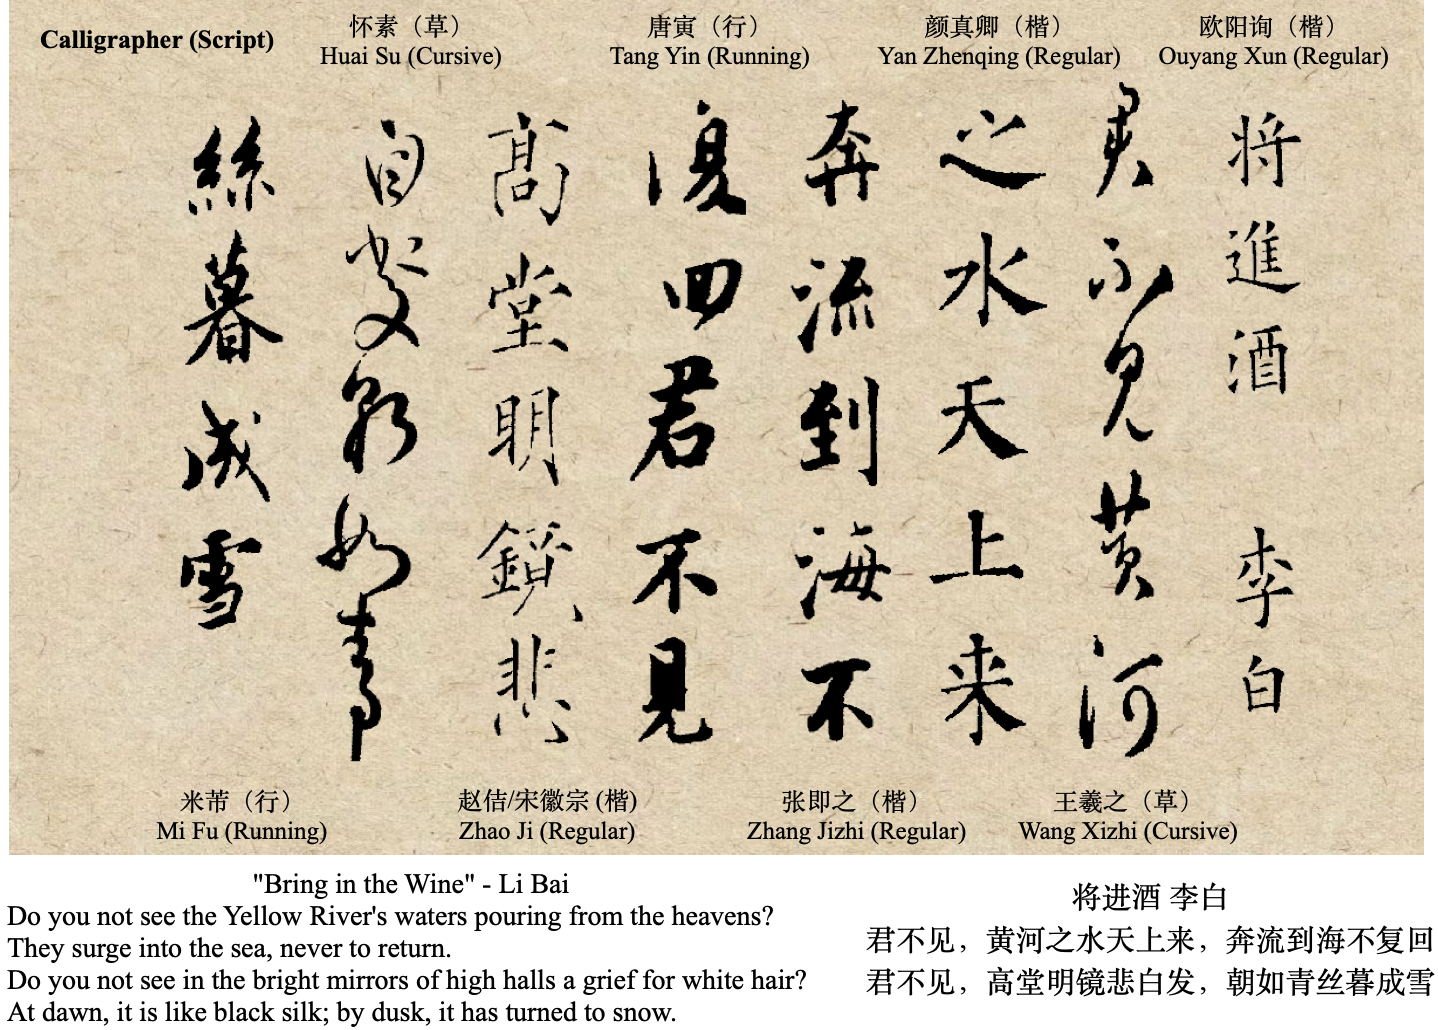 Calligrapher (Script)
怀素（草）
Huai Su (Cursive)
唐寅（行）
Tang Yin (Running)
颜真卿（楷）
Yan Zhenqing (Regular)
欧阳询（楷）
Ouyang Xun (Regular)
将進酒 李白
君不見黄河
之水天上来
奔流到海不
復回君不見
髙堂明鏡悲
白髮朝如青
絲暮成雪
米芾（行）
Mi Fu (Running)
赵佶/宋徽宗 (楷)
Zhao Ji (Regular)
张即之（楷）
Zhang Jizhi (Regular)
王羲之（草）
Wang Xizhi (Cursive)
"Bring in the Wine" - Li Bai
Do you not see the Yellow River's waters pouring from the heavens?
They surge into the sea, never to return.
Do you not see in the bright mirrors of high halls a grief for white hair?
At dawn, it is like black silk; by dusk, it has turned to snow.
将进酒 李白
君不见，黄河之水天上来，奔流到海不复回
君不见，高堂明镜悲白发，朝如青丝暮成雪